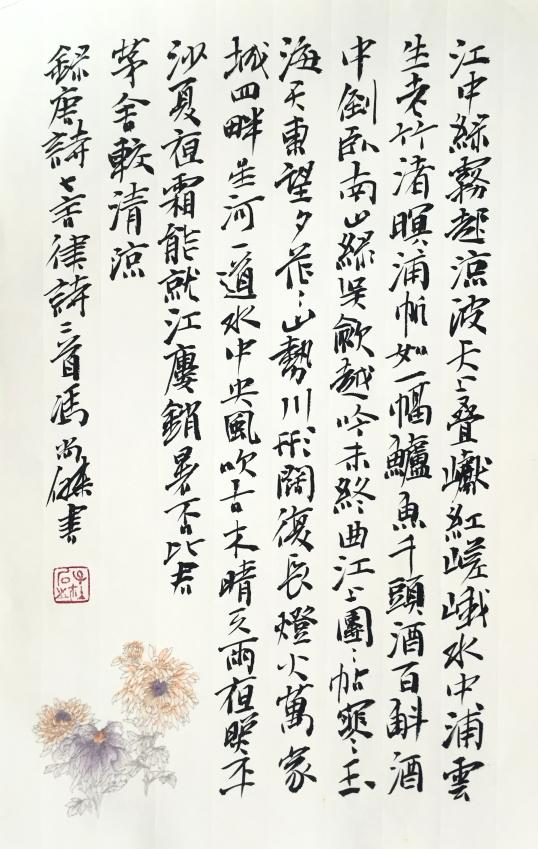 江中綠霧起涼波天上疊巘紅嵯峨水中浦雲
生老竹渚暝浦帆如一幅鱸魚千頭酒百斛酒
中倒臥南山綠吳歈越吟未終曲江上團々帖寒玉
海天東望夕茫々山勢川形闊復長燈火萬家
城四畔星河一道水中央風吹古木晴天雨夜照平
沙夏夜霜能就江廔銷暑否比君
茅舍較清涼
錄唐詩七言律詩二首馮尚傑書